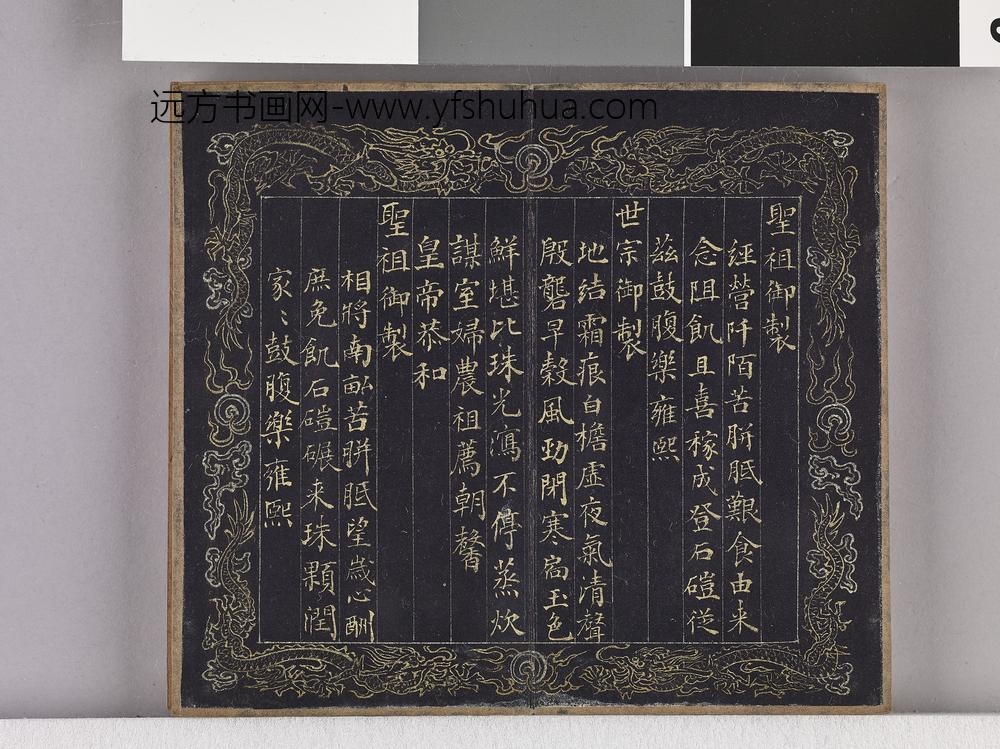 远方书画网-www.yfshuhua.com
聖祖御製
經營阡陌苦胼胝艱食由来
念阻飢且喜稼成登石磑從
兹鼓腹樂雍熙
世宗御製
地结霜痕白檐虛夜氣清聲
殷礱早榖風勁閉寒宿玉色
鮮堪比珠光瀉不停蒸炊
謀室婦農祖薦朝馨
皇帝恭和
聖祖御製
相將南畝苦胼胝望歲心酬
庶免飢石磑碾来珠顆潤
家〻鼓腹樂雍熙